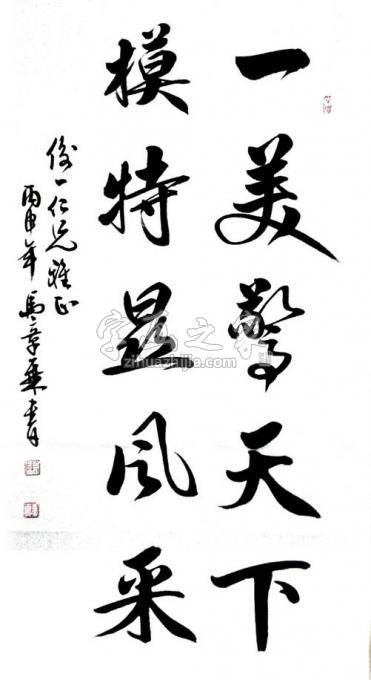 一美驚天下
模特显风采
俊一仁兄雅正
丙申年 馬章乘書
字画之家
zihuazhijia.com